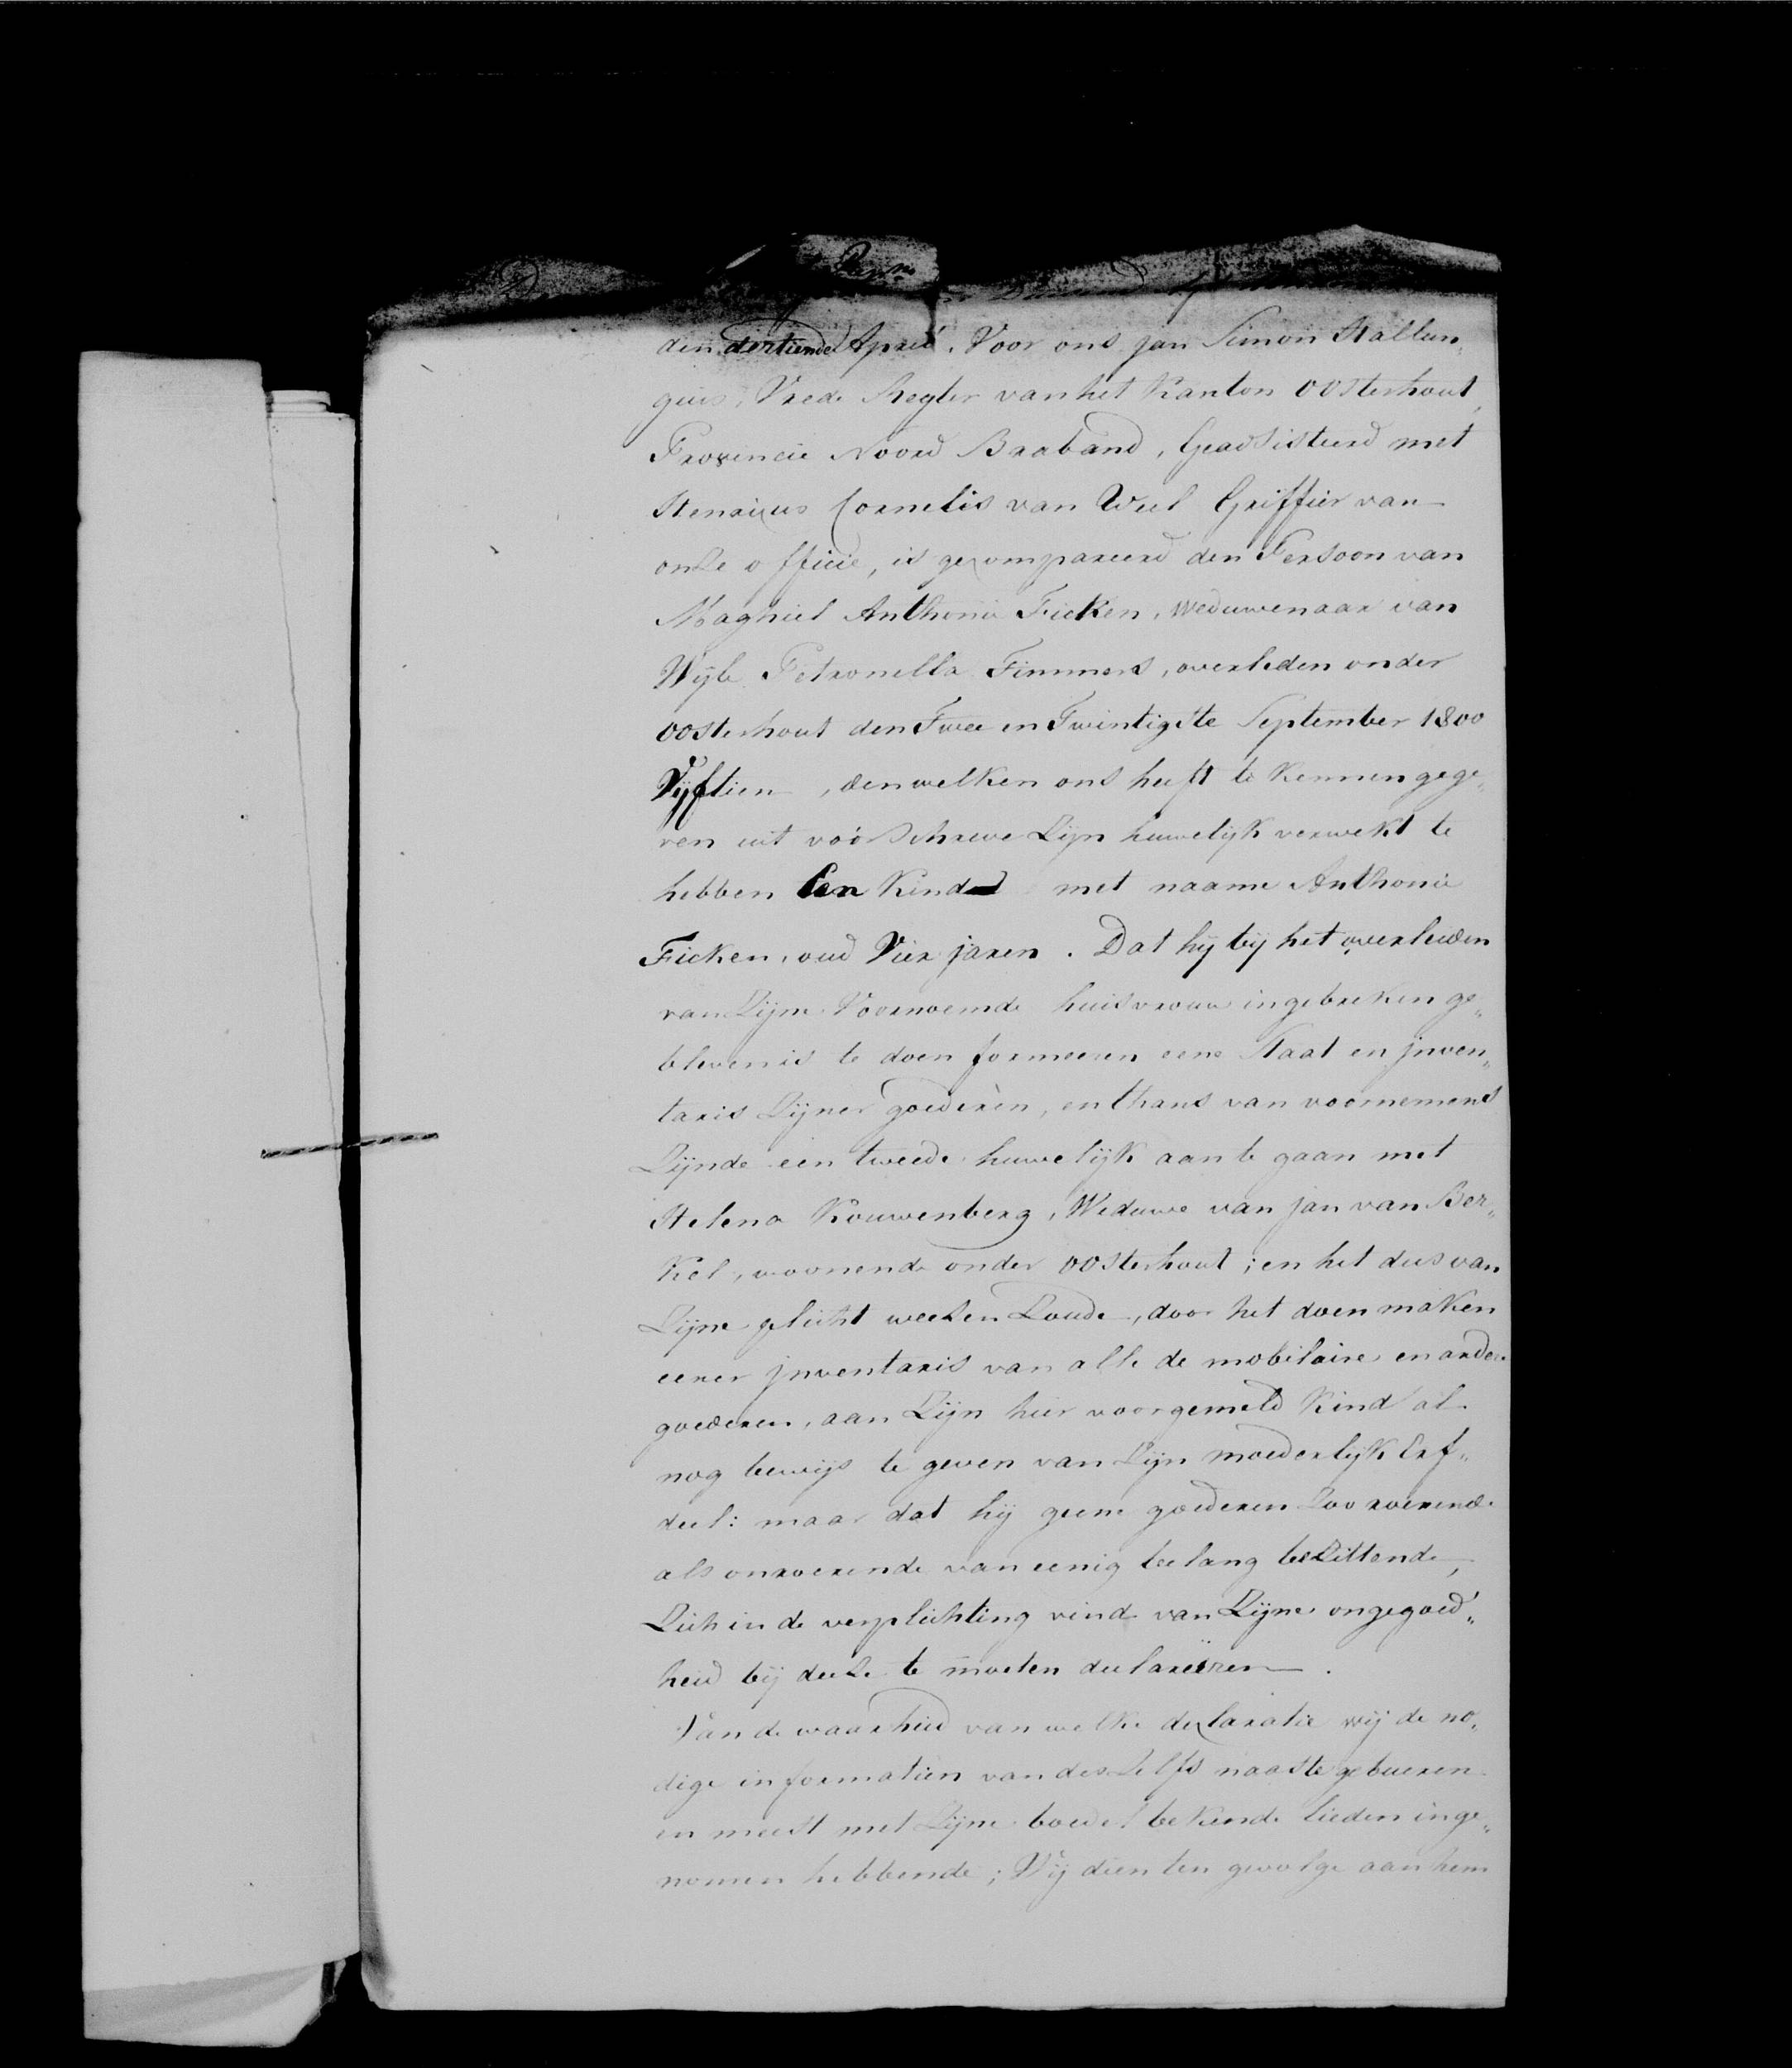 den dertiende April. Voor ons jan Simon Hallun„
gius, Vrede Regter van het Kanton Oosterhout,
Provincie Noord Braband, Geadsisteerd met
Henricus Cornelis van Weel Griffier van
onze officie, is gecompareerd den Persoon van
Maghiel Anthonie Ficken, Weduwenaar van
Wijle Petronella Timmers, overleden onder
Oosterhout den Twee en Twintigste September 1800
Vijftien, denwelken ons heeft te kennen gege„
ven uit voorschreve Zijn huwelijk verwekt te
hebben Een Kind met naame Anthonie
Ficken, oud Vier jaren. Dat hij bij het overleiden
van Zijne Voornoemde huisvrouw in gebreken ge„
bleven is te doen formeeren eene Staat en jnven„
taris Zijner goederen, en thans van voornemens
Zijnde een tweede huwelijk aan te gaan met
Helena Kouwenberg, Weduwe van jan van Ber„
kel, woonende onder Oosterhout; en het dus van
Zijne plicht weezen Zoude, door het doen maken
eener jnventaris van alle de mobilaire en andere
goederen, aan Zijn hier voorgemeld Kind al
nog bewijs te geven van Zijn moederlijk Erf„
deel: maar dat hij geene goederen Zoo roerende
als onroerende van eenig belang bezittende,
Zich in de verplichting vind van Zijne ongegoed„
heid bij deeze te moeten declareeren.
Van de waarheid van welke declaratie wij de no„
dige informatien van deszelfs naaste gebueren
en meest met Zijne boedel bekende lieden inge„
nomen hebbende; Wij dien ten gevolge aan hem